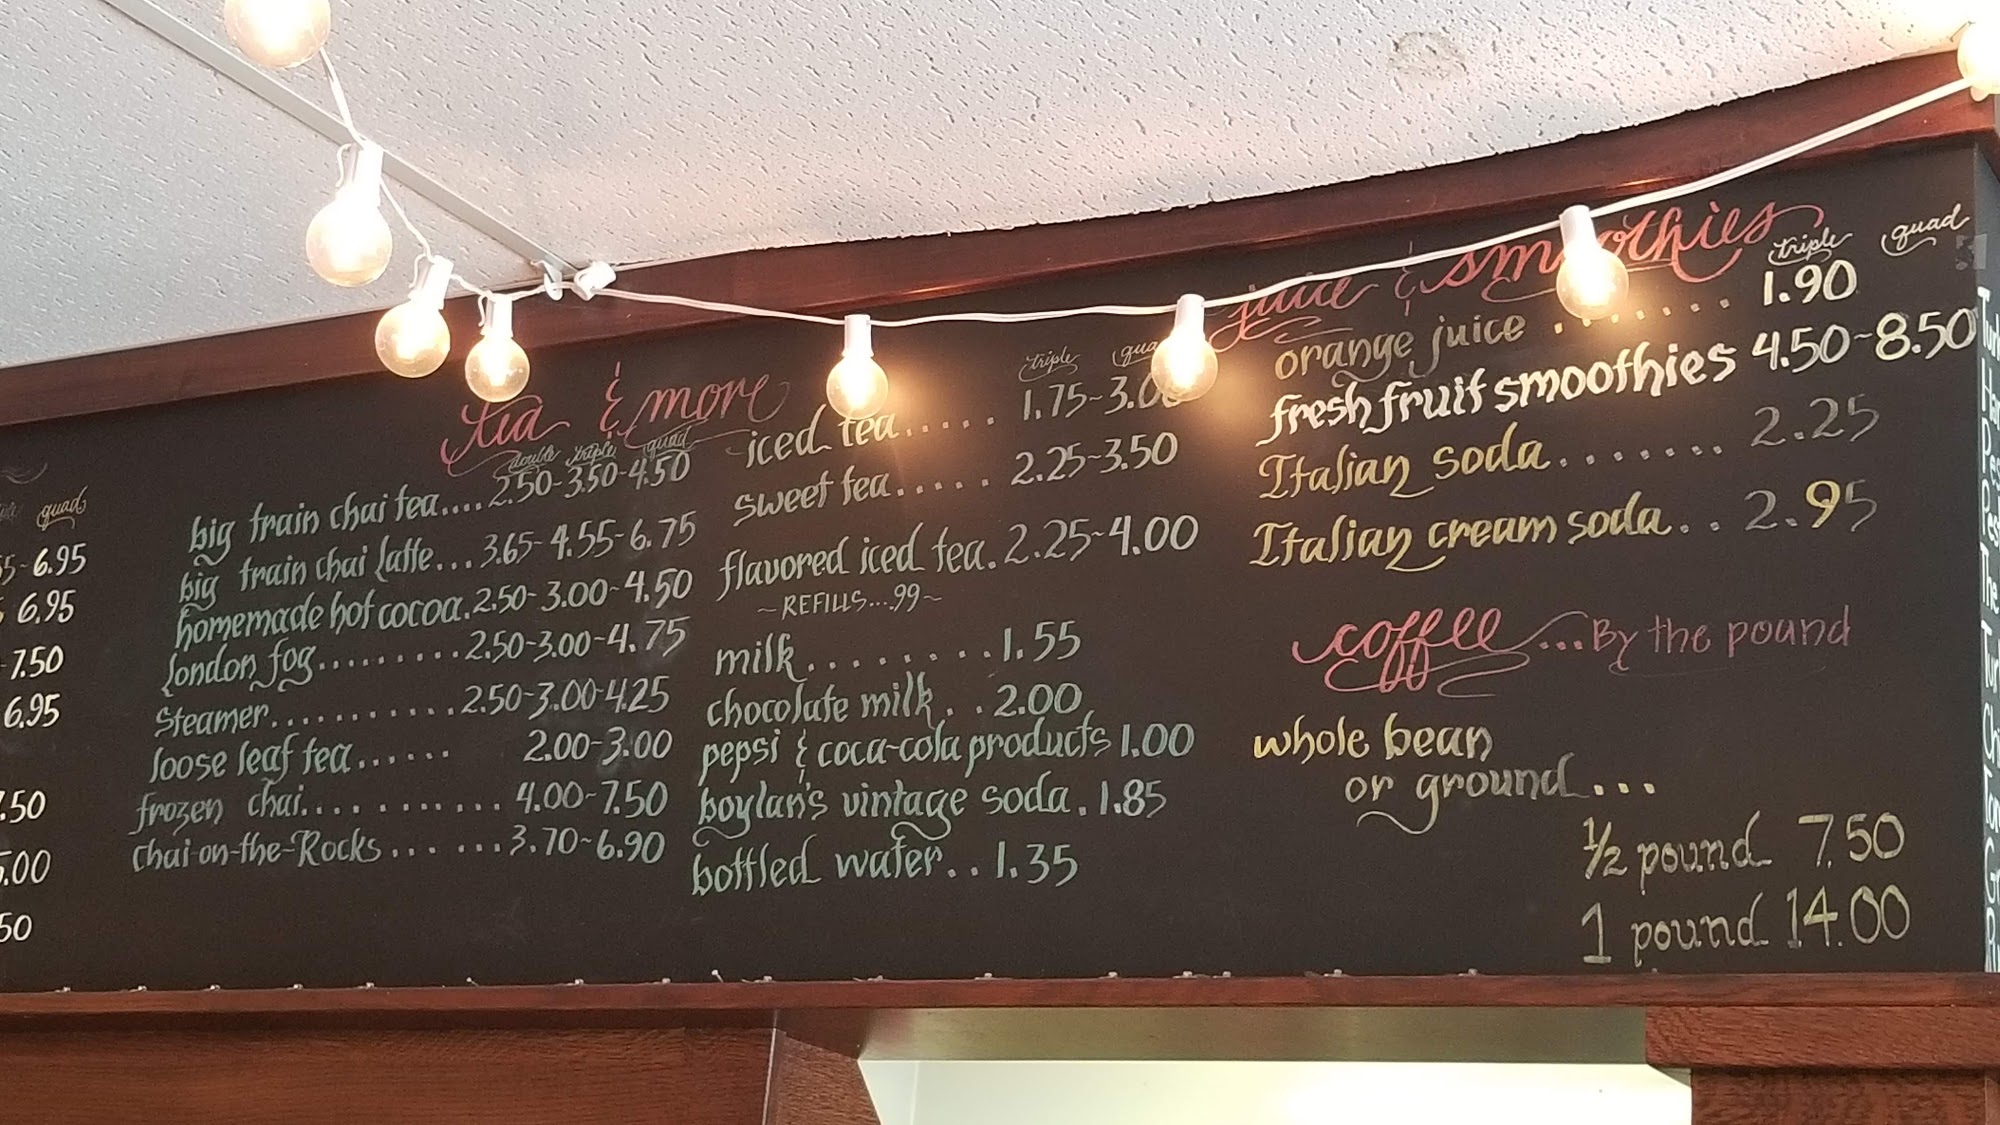 quad
6.95
6.95
7.50
6.95
.50
5.00
50
tea & more
double triple quad
big train chai tea....2.50-3.50-4.50
big train chai latte...3.65-4.55-6.75
homemade hot cocoa.2.50-3.00-4.50
london fog.........2.50-3.00-4.75
Steamer...........2.50-3.00-4.25
loose leaf tea...... 2.00-3.00
frozen chai........... 4.00-7.50
Chai-on-the-Rocks......3.70~6.90
triple
iced tea..... 1.75~3.00
sweet tea..... 2.25-3.50
flavored iced tea.2.25~4.00
~REFILLS....99~
milk.........1.55
chocolate milk...2.00
pepsi & coca-cola products 1.00
boylan's vintage soda.1.85
bottled water..1.35
juice & smoothies
triple quad
orange juice ....... 1.90
fresh fruit smoothies 4.50~8.50
Italian soda....... 2.25
Italian cream soda.. 2.95
coffee...By the pound
whole bean
or ground...
1/2 pound 7.50
1 pound 14.00